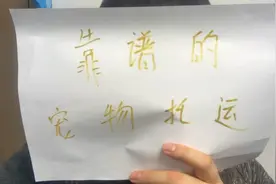 靠谱的
宠物托运